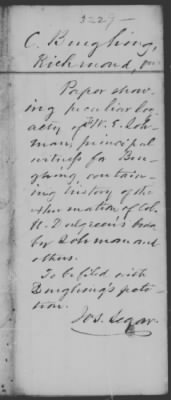 3229—
C. Bunghing,
Richmond, 
Paper show-
ing peculiar loy-
alty of W. E. Loh-
man, principal
witness for Bun-
ghing contain-
ing history of the
exhumation of Col.
U. Dalgreen's body
by Lohman and
others.
To be filed with
Bunghing's peti-
tion.
Jos. Segar.